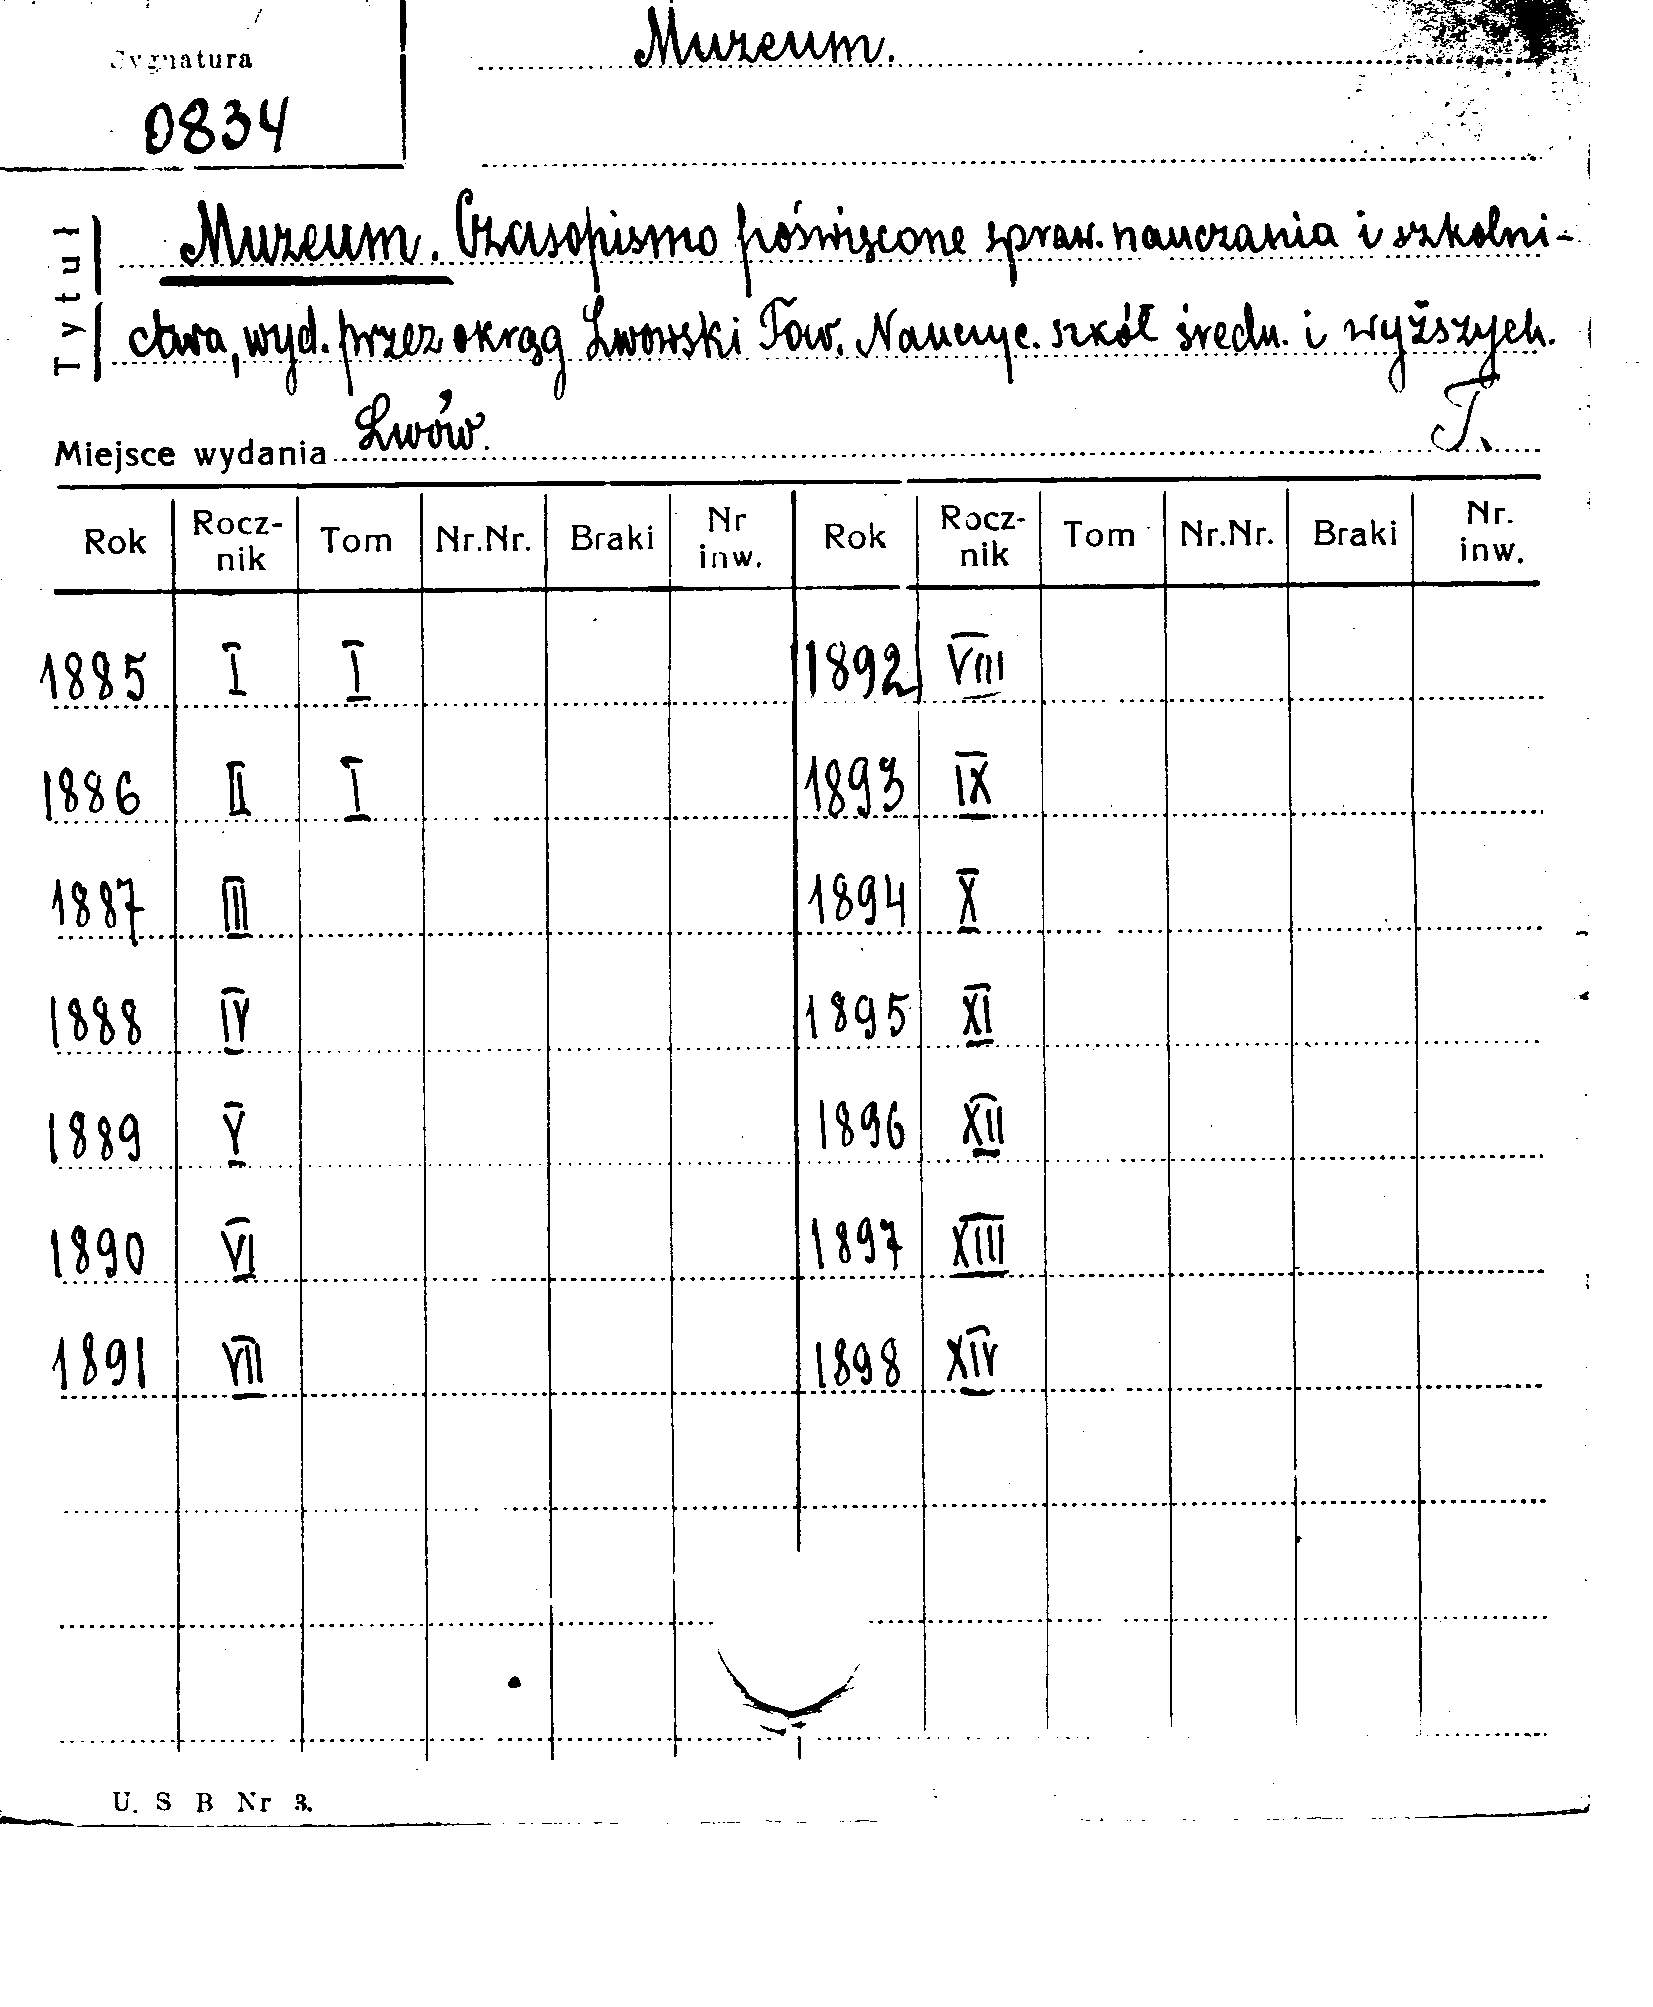 Sygnatura
0834
Muzeum.
Tytuł
Muzeum. Czasopismo poświęcone spraw. nauczania i szkolni-
ctwa, wyd. przez okrąg Lwowski Tow. Nauczyc. szkół średn. i wyższych.
Miejsce wydania Lwów. T.
Rok Rocz-nik Tom Nr.Nr. Braki Nr inw. Rok Rocz-nik Tom Nr.Nr. Braki Nr. inw.
1885 I I 1892 VIII
1886 II I 1893 IX
1887 III 1894 X
1888 IV 1895 XI
1889 V 1896 XII
1890 VI 1897 XIII
1891 VII 1898 XIV
U. S B Nr 3.